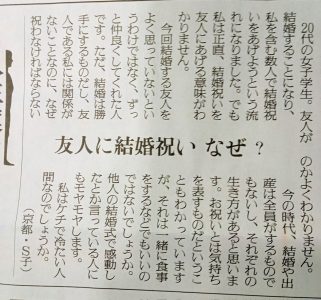 友人に結婚祝い なぜ?
20代の女子学生。友人が
結婚することになり、
私を含む数人で結婚祝
いをあげようという流
れになりました。でも
私は正直、結婚祝いを
友人にあげる意味がわ
かりません。
今回結婚する友人を
よく思っていないとい
うわけではなく、ずっ
と仲良くしてくれた人
です。ただ、結婚は勝
手にするものだし、友
人である私には関係が
ないことなのに、なぜ
祝わなければならない
のかよくわかりません。
今の時代、結婚や出
産は全員がするもので
もないし、それぞれの
生き方があると思いま
す。お祝いとは気持ち
を表すものだというこ
ともわかっています
が、それは一緒に食事
をするなどでもいいの
ではないでしょうか。
他人の結婚式で感動し
たとか言っている人に
もモヤモヤします。
私はケチで冷たい人
間なのでしょうか。
（京都・S子）